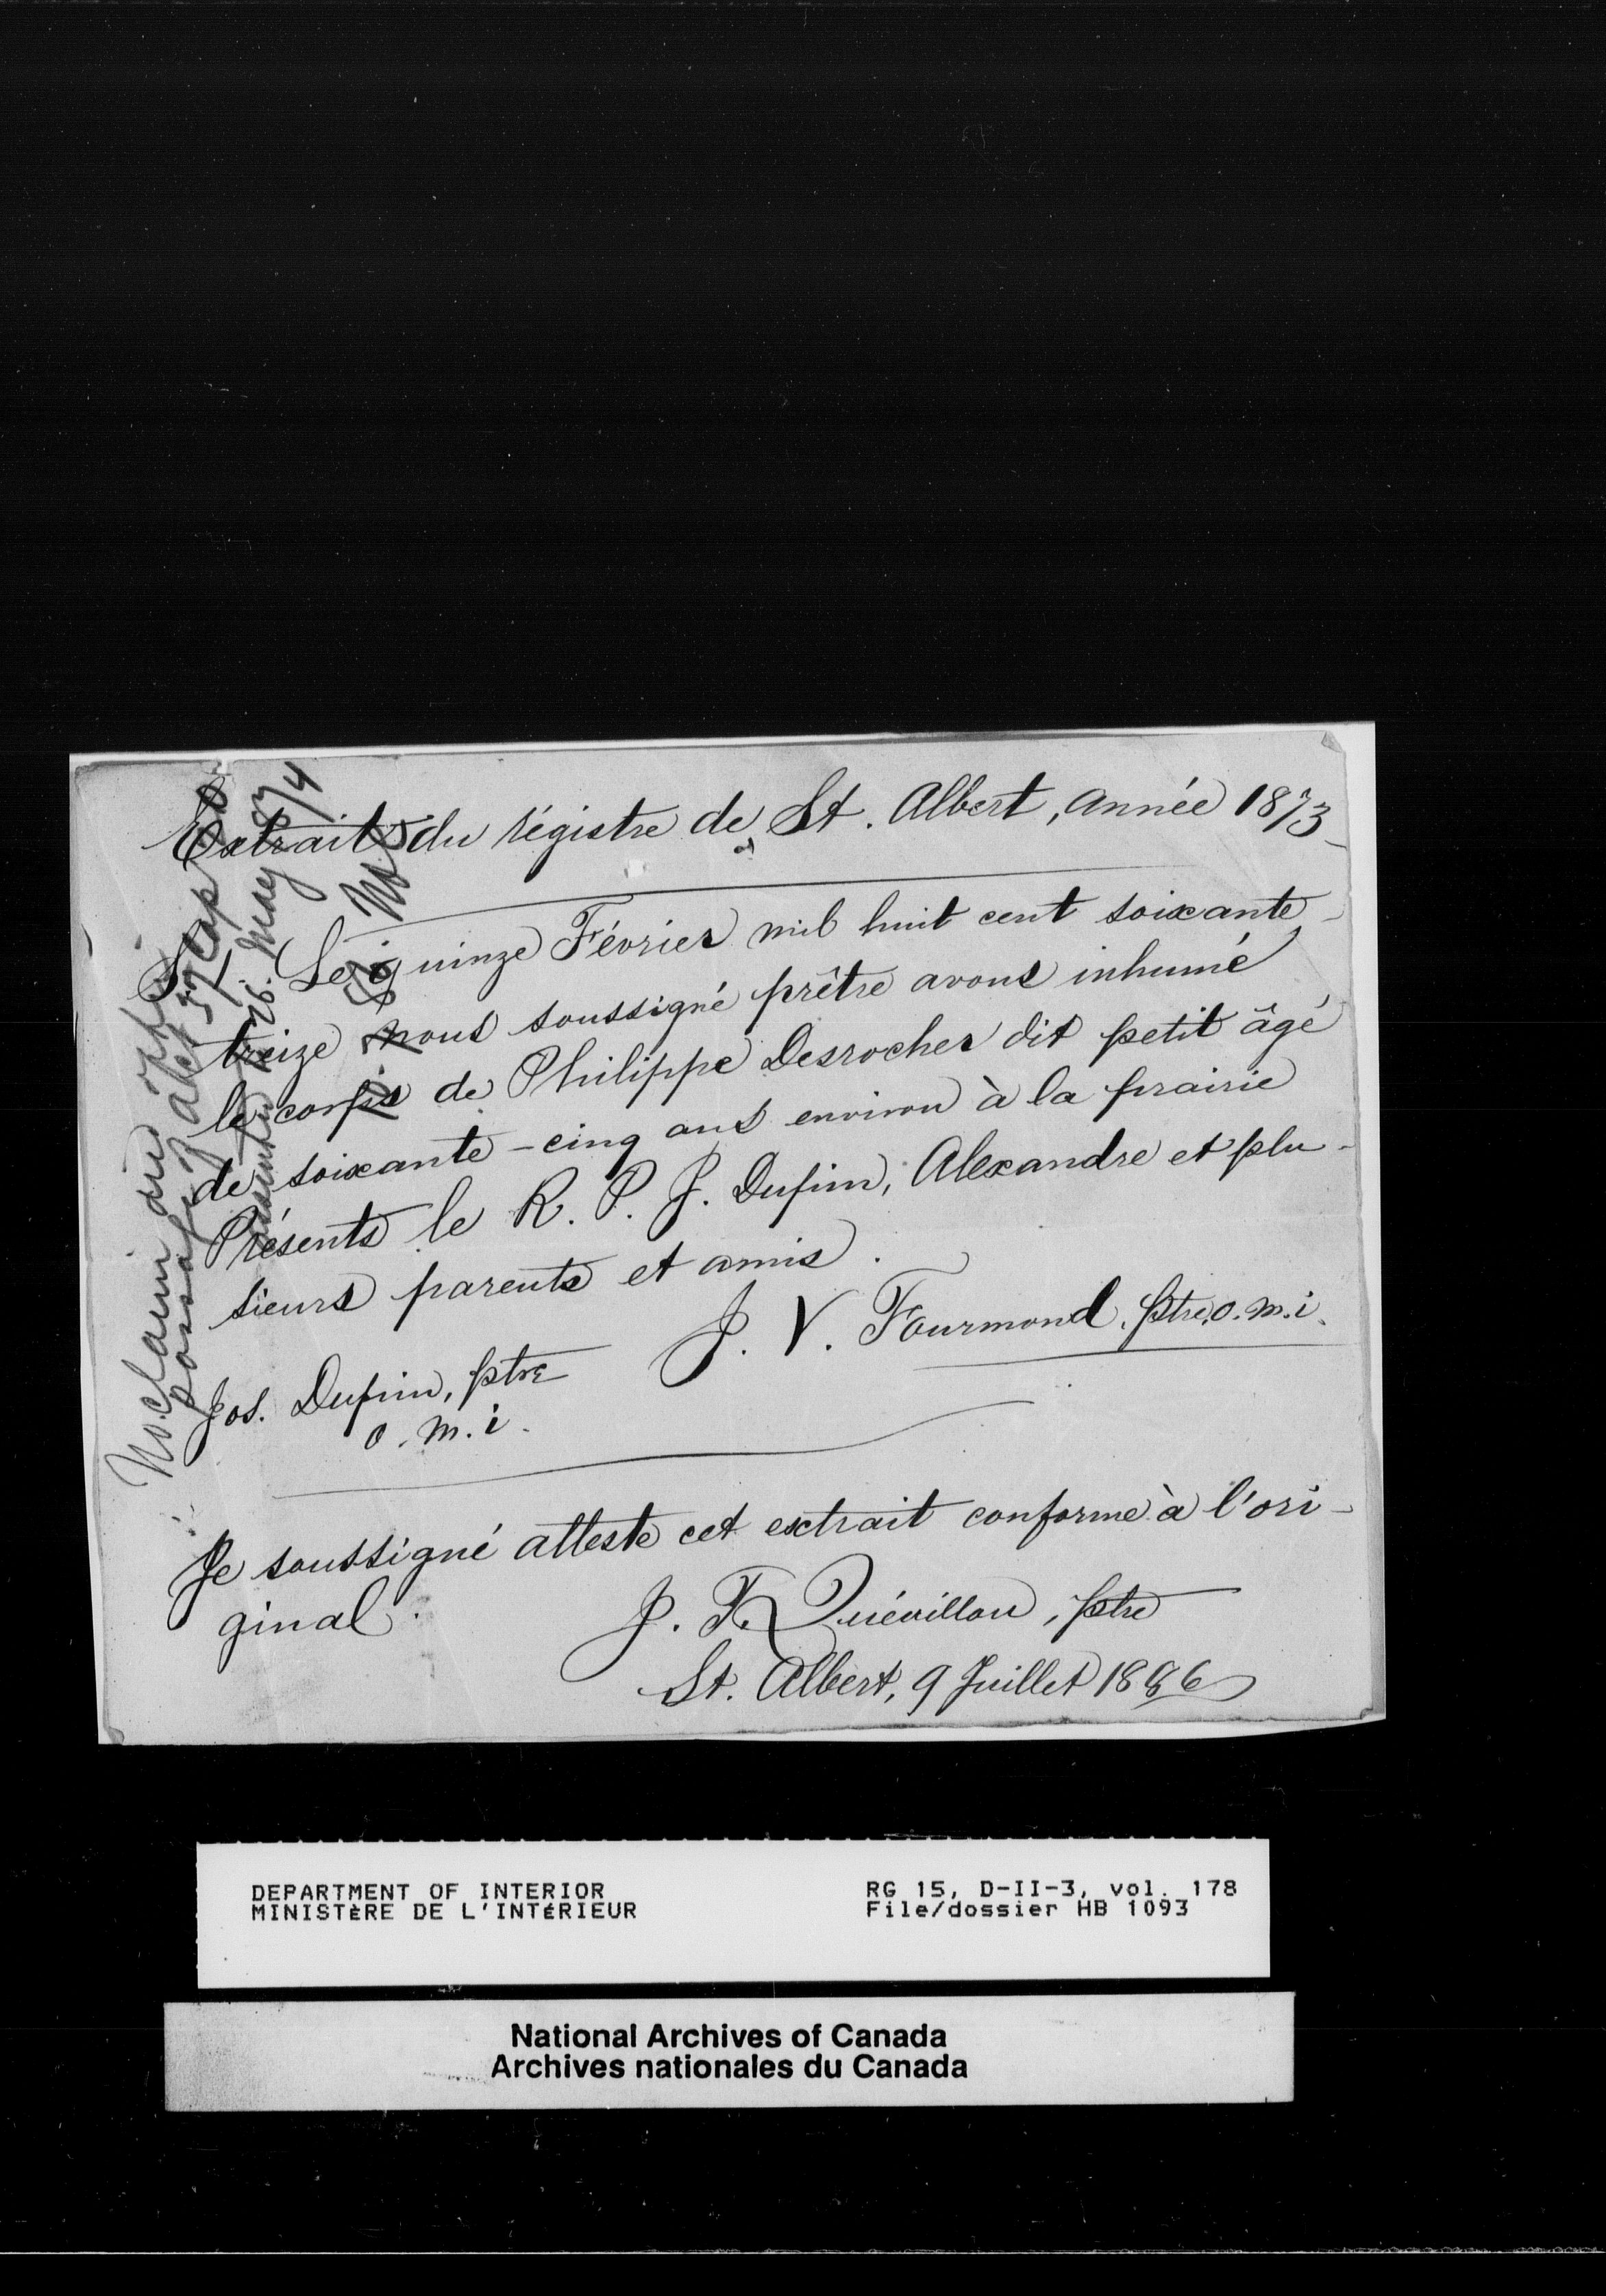 Extrait du régistre de St. Albert, année 1873_
S. 7. Le quinze Février mil huit cent soixante-
treize nous soussigné prêtre avons inhumé
le corps de Philippe Desrocher dit petit âgé
de soixante-cinq ans environ à la prairie
Présents le R. P. J. Dupin, Alexandre et plu-
sieurs parents et amis.
J. V. Fourmond, ptre, o. m. i.
Jos. Dupin, ptre
o. m. i.
Je soussigné atteste cet extrait conforme à l'ori-
ginal.
J. F. Quévillon, ptre
St. Albert, 9 Juillet 1886
No claim
DEPARTMENT OF INTERIOR
MINISTÈRE DE L'INTÉRIEUR
RG 15, D-II-3, vol. 178
File/dossier HB 1093
National Archives of Canada
Archives nationales du Canada